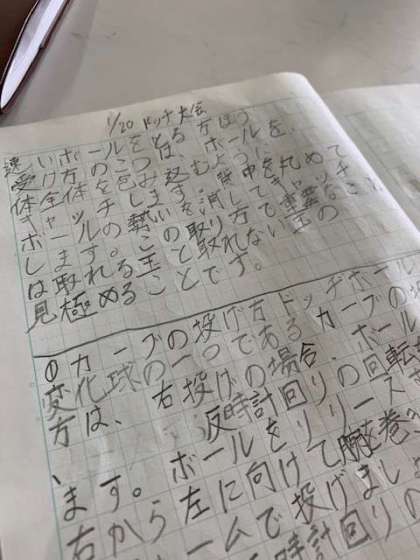 1/20 ドッチ大会
速いボールをとる方ほう
受け方のこつは、ボールを
体全体をつつむように
背中を丸めて
ボールの勢いを消してキャッチ
します。この取り方で重要なこと
は取れる玉と取れない玉の
見極めることです。
①カーブの投げ方ドッチボールの
変化球の一つであるカーブの投
方は、右投げの場合、ボール
反時計回りの回転
、ボールをリリースす
ます。左に向けて腕を巻
右から ームで投げましょ
時計回りの